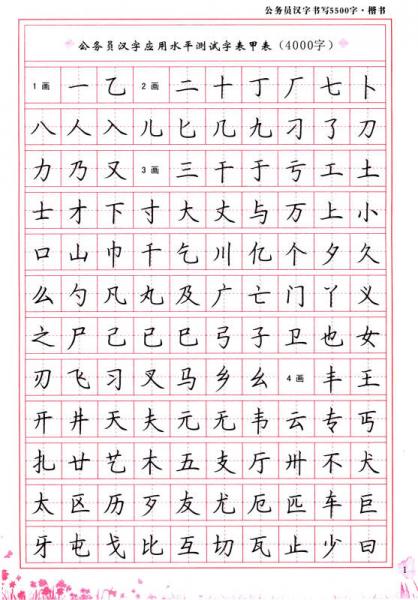 公务员汉字书写5500字·楷书
公务员汉字应用水平测试字表甲表(4000字)
1画 一 乙 2画 二 十 丁 厂 七 卜
八 人 入 儿 匕 几 九 刁 了 刀
力 乃 又 3画 三 干 于 亏 工 土
士 才 下 寸 大 丈 与 万 上 小
口 山 巾 千 乞 川 亿 个 夕 久
么 勺 凡 丸 及 广 亡 门 丫 义
之 尸 己 已 巳 弓 子 卫 也 女
刃 飞 习 叉 马 乡 幺 4画 丰 王
开 井 天 夫 元 无 韦 云 专 丐
扎 廿 艺 木 五 支 厅 卅 不 犬
太 区 历 歹 友 尤 厄 匹 车 巨
牙 屯 戈 比 互 切 瓦 止 少 曰
1